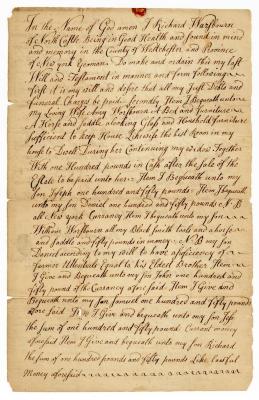 In the Name of God amen I Richard Washbourn
of North Castle Being in God Health and found in mind
and memory in the County of Wastchester and Provence
of New york yeoman Do make and ordain this my last
Will and Testament in manner and form following
first it is my will and desire that all my Just Debts and
funeral Charges be paid Secondly Item I Bequeath unto
my Loving Wife Amy Washbourn a Bed and furniture
a Horse and saddle a looking Glass and Houshold furniture
sufficient to keep House Likewise the best Room in my
house to Dwell During her Contenuing my widow Together
With one Hundred pounds in Cash after the Sale of the
Estate to be paid unto her Item I Bequeath unto my
son Joseph one hundred and fifty pounds Item I bequeath
unto my son Daniel one hundred and fifty pounds NB
all New york Currancy Item I bequeath unto my son
William Washbourn all my Black smith tools and a horse
and saddle and fifty pounds in money NB my son
Daniel according to my Will to have a sufficiency of
former to his Eldest Brother Item
I Give and Bequeath unto my son John one hundred and
fifty pound of the Currancy afore said Item I Give and
Bequeath unto my son Samuel one hundred and fifty pounds
afore said Item I Give and bequeath unto my son
the sum of one hundred and fifty pounds Currant money
aforesaid Item I give and bequeath unto my son Richard
the sum of one hundred pounds and fifty pounds Like Lawful
Money aforesaid